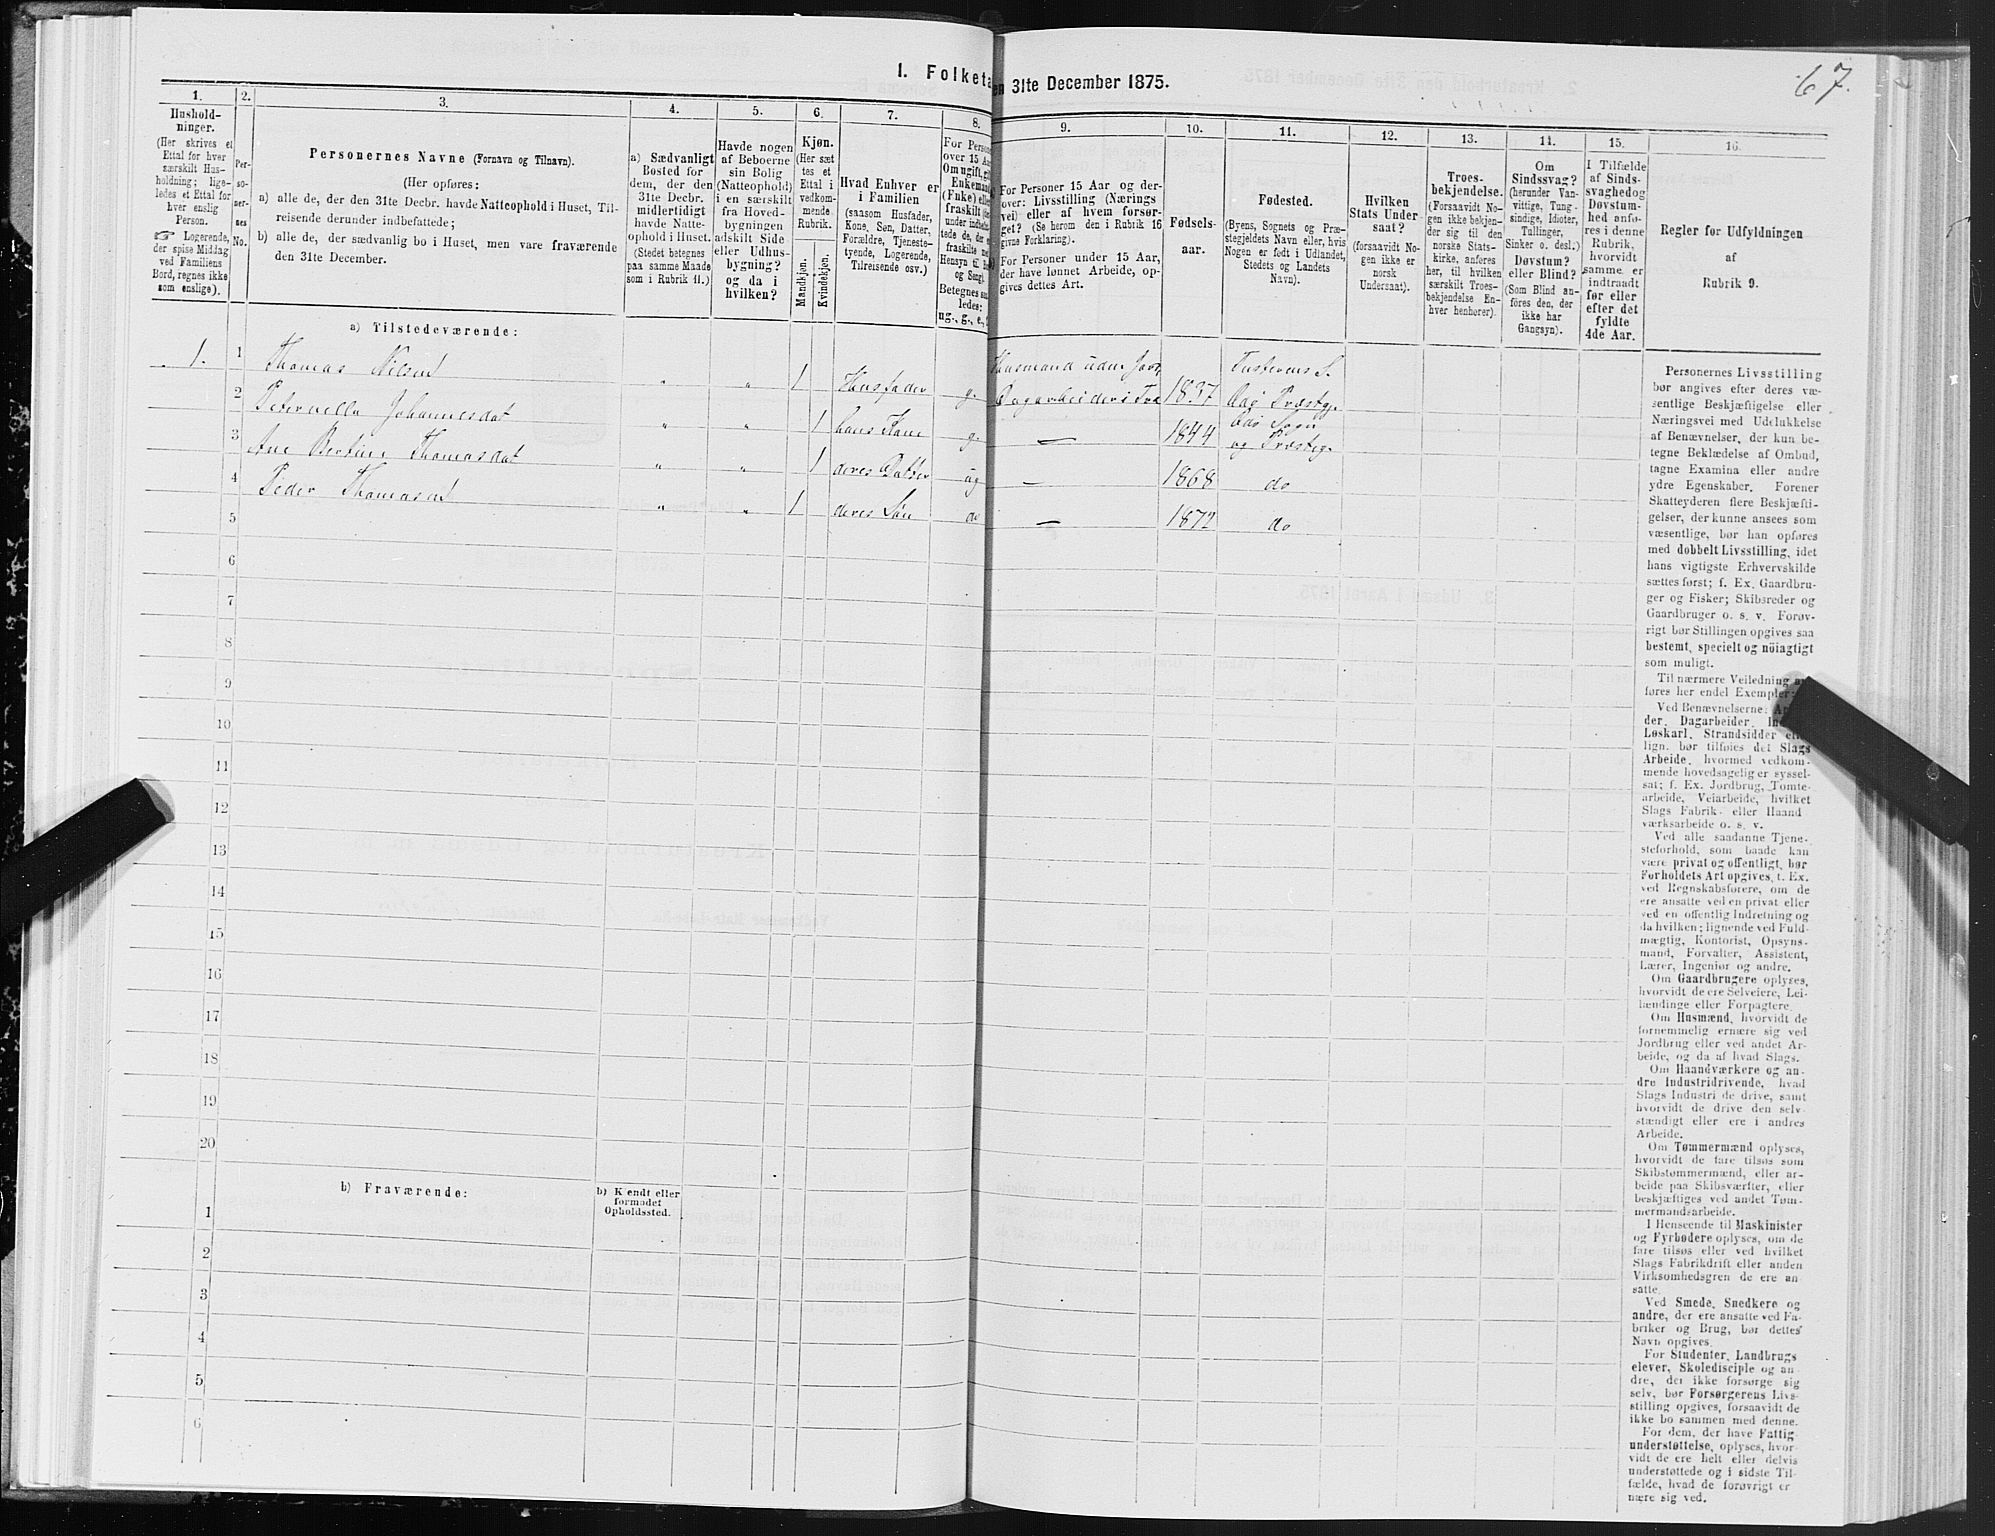 67.
I. Folketa
en 31te December 1875.
1.
Hushold-
ninger.
(Her skrives et
Ettal for hver
særskilt Hus-
holdning; lige-
ledes et Ettal for
hver enslig
Person.
☞ Logerende,
der spise Middag
ved Familiens
Bord, regnes ikke
som enslige).
2.
Per-
so-
ner-
nes
No.
3.
Personernes Navne (Fornavn og Tilnavn).
(Her opføres:
a) alle de, der den 31te Decbr. havde Natteophold i Huset, Til-
reisende derunder indbefattede;
b) alle de, der sædvanlig bo i Huset, men vare fraværende
den 31te December.
4.
a) Sædvanligt
Bosted for
dem, der den
31te Decbr.
midlertidigt
havde Natte-
ophold i Huset.
(Stedet betegnes
paa samme Maade
som i Rubrik 11.)
5.
Havde nogen
af Beboerne
sin Bolig
(Natteophold)
i en særskilt
fra Hoved-
bygningen
adskilt Side
eller Udhus-
bygning?
og da i
hvilken?
6.
Kjøn.
(Her sæt
tes et
Ettal i
vedkom-
mende
Rubrik.
Mandkjøn.
Kvindekjøn.
7.
Hvad Enhver er
i Familien
(saasom Husfader,
Kone, Søn, Datter,
Forældre, Tjeneste-
tyende, Logerende,
Tilreisende osv.)
8.
For Person
over 15 Aa
Om ugift, g
Enkeman
(Fnke) elle
fraskilt
under indbe
tede de, der
fraskilte
Hensyn til
og Seng).
Betegnes
ledes:
ug., g., e.,
9.
For Personer 15 Aar og der-
over: Livsstilling (Nærings
vei) eller af hvem forsør-
get? (Se herom den i Rubrik 16
givne Forklaring).
For Personer under 15 Aar,
der have lønnet Arbeide, op-
gives dettes Art.
10.
Fødsels-
aar.
11.
Fødested.
(Byens, Sognets og Præ-
stegjeldets Navn eller, hvis
Nogen er født i Udlandet,
Stedets og Landets
Navn).
12.
Hvilken
Stats Under-
saat?
(forsaavidt No-
gen ikke er
norsk
Undersaat).
13.
Troes-
bekjendelse.
(Forsaavidt No-
gen ikke bekjen-
der sig til den
norske Stats-
kirke, anføres
her, til hvilken
særskilt Troes-
bekjendelse En-
hver henhører).
14.
Om
Sindssvag?
(herunder Van-
vittige, Tung-
sindige, Idioter,
Tullinger,
Sinker o. desl.)
Døvstum?
eller Blind?
(Som Blind an-
föres den, der
ikke har
Gangsyn).
15.
I Tilfælde
af Sinds-
svaghed og
Døvstum-
hed anfø-
res i denne
Rubrik,
hvorvidt
samme er
indtraadt
før eller
efter det
fyldte
4de Aar.
16.
Regler for Udfyldningen
af
Rubrik 9.
a) Tilstedeværende:
1. 1 Thomas Nilsen " " 1 Husfader g. Husmand uden Jord, 1837 Tustervens S.
2 Peternella Johannesdat " " 1 hans Kone g. — 1844
3 Ane Bertine Thomasdat " " 1 deres Datter ug — 1868 do
4 Peder Thomasen " " 1 deres Søn do — 1872 do
5
6
7
8
9
10
11
12
13
14
15
16
17
18
19
20
b) Fraværende:
b) Kjendt eller
formodet
Opholdssted.
1
2
3
4
5
6
Personernes Livsstilling
bør angives efter deres væ-
sentlige Beskjæftigelse eller
Næringsvei med Udelukkelse
af Benævnelser, der kun be-
tegne Beklædelse af Ombud,
tagne Examina eller andre
ydre Egenskaber. Forener
Skatteyderen flere Beskjæfti-
gelser, der kunne ansees som
væsentlige, bør han opføres
med dobbelt Livsstilling, idet
hans vigtigste Erhvervskilde
sættes først; f. Ex. Gaardbru-
ger og Fisker; Skibsreder og
Gaardbruger o. s. v. Forøv-
rigt bør Stillingen opgives saa
bestemt, specielt og nöiagtigt
som muligt.
Til nærmere Veiledning
føres her endel Exempler:
Ved Benævnelserne:
der, Dagarbeider,
Løskarl, Strandsidder
lign. bør tilføies det Slags
Arbeide, hvormed vedkom-
mende hovedsagelig er syssel-
sat; f. Ex. Jordbrug, Tomte-
arbeide, Veiarbeide, hvilket
Slags Fabrik- eller Haand
værksarbeide o. s. v.
Ved alle saadanne Tjene-
steforhold, som baade kan
være privat og offentligt, bør
Forholdets Art opgives, t. Ex.
ved Regnskabsførere, om de
ere ansatte ved en privat eller
ved en offentlig Indretning og
da hvilken; lignende ved Fuld-
mægtig, Kontorist, Opsyns-
mand, Forvalter, Assistent,
Lærer, Ingeniør og andre.
Om Gaardbrugere oplyses,
hvorvidt de ere Selveiere, Lei-
lændinge eller Forpagtere.
Om Husmænd, hvorvidt de
fornemmelig ernære sig ved
Jordbrug eller ved andet Ar-
beide, og da af hvad Slags.
Om Haandværkere og an-
dre Industridrivende, hvad
Slags Industri de drive, samt
hvorvidt de drive den selv-
stændigt eller ere i andres
Arbeide.
Om Tømmermænd oplyses,
hvorvidt de fare tilsøs som
Skibstømmermænd, eller ar-
beide paa Skibsværfter, eller
beskjæftiges ved andet Tøm-
mermandsarbeide.
I Henseende til Maskinister
og Fyrbødere oplyses, om de
fare tilsøs eller ved hvilket
Slags Fabrikdrift eller anden
Virksomhedsgren de ere an-
satte.
Ved Smede, Snedkere og
andre, der ere ansatte ved Fa-
briker og Brug, bør dettes
Navn opgives.
For Studenter, Landbrugs
elever, Skoledisciple og an-
dre, der ikke forsørge sig
selv, bør Forsørgerens Livs-
stilling opgives, forsaavidt de
ikke bo sammen med denne.
For dem, der have Fattig
understøttelse, oplyses, hvor-
vidt de ere helt eller delvis
understøttede og i sidste Til-
fælde, hvad de forøvrigt er
nære sig ved.